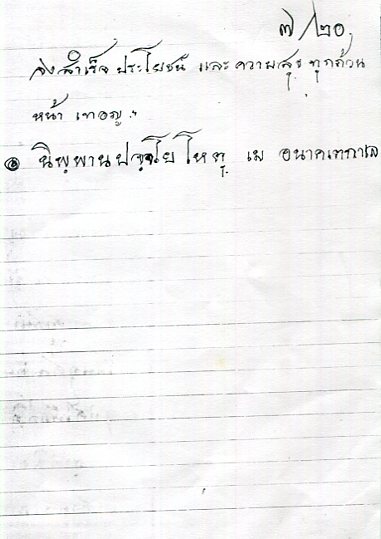 ๗/๒๐.
จงสำเร็จ ประโยชน์ และ ความสุข ทุกถ้วน
หน้า เทอญ ฯ
๏ นิพฺพานปจฺจโย โหตุ เม อนาคเตกาเล